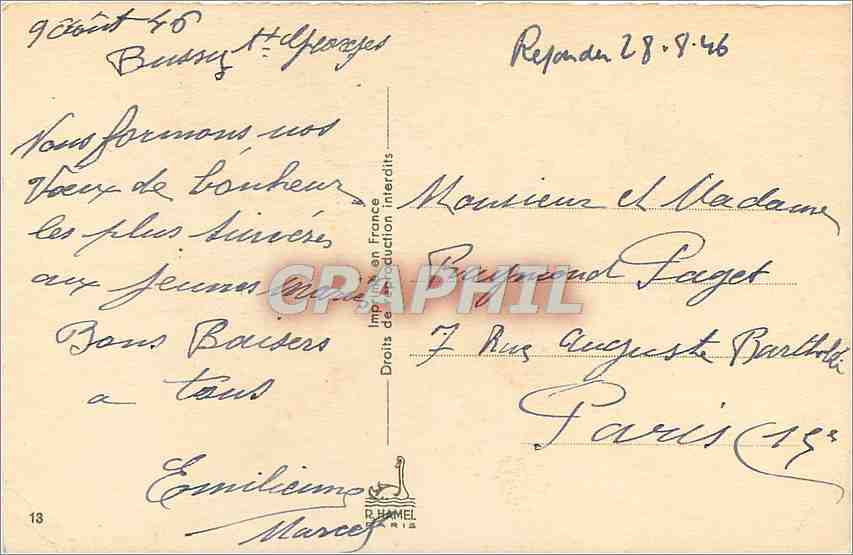 9 Août 46
Bussy St Georges
Nous formons nos
Vœux de bonheur
les plus sincères
aux jeunes mariés
Bons Baisers
a tous
Emilienne
Marcel
Repondu 28.8.46
Monsieur et Madame
Raymond Paget
7 Rue Auguste Bartholdi
Paris (15e
Imprimé en France
Droits de reproduction interdits
CPAPHIL
R. HAMEL
PARIS
13